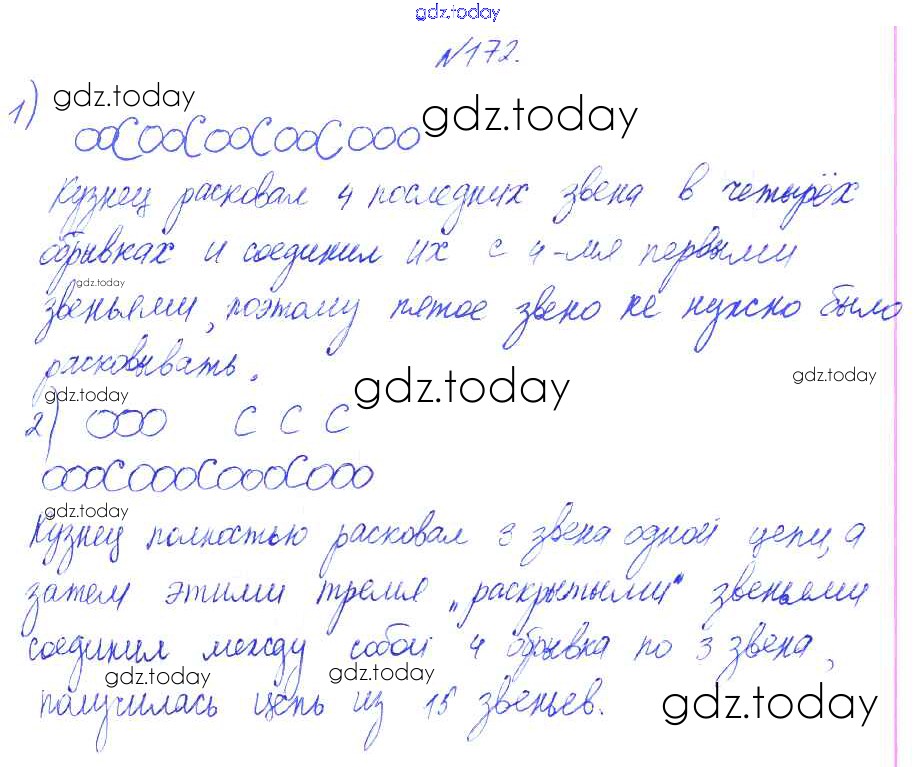 gdz.today
№172.
1) gdz.today
gdz.today
Кузнец расковал 4 последних звена в четырёх
обрывках и соединил их с 4-мя первыми
gdz.today
звеньями, поэтому пятое звено не нужно было
расковывать.
gdz.today
gdz.today
gdz.today
2) С С С
gdz.today
Кузнец полностью расковал 3 звена одной цепи, а
затем этими тремя „раскрытыми" звеньями
соединил между собой 4 обрывка по 3 звена,
gdz.today gdz.today
получилась цепь из 15 звеньев.
gdz.today